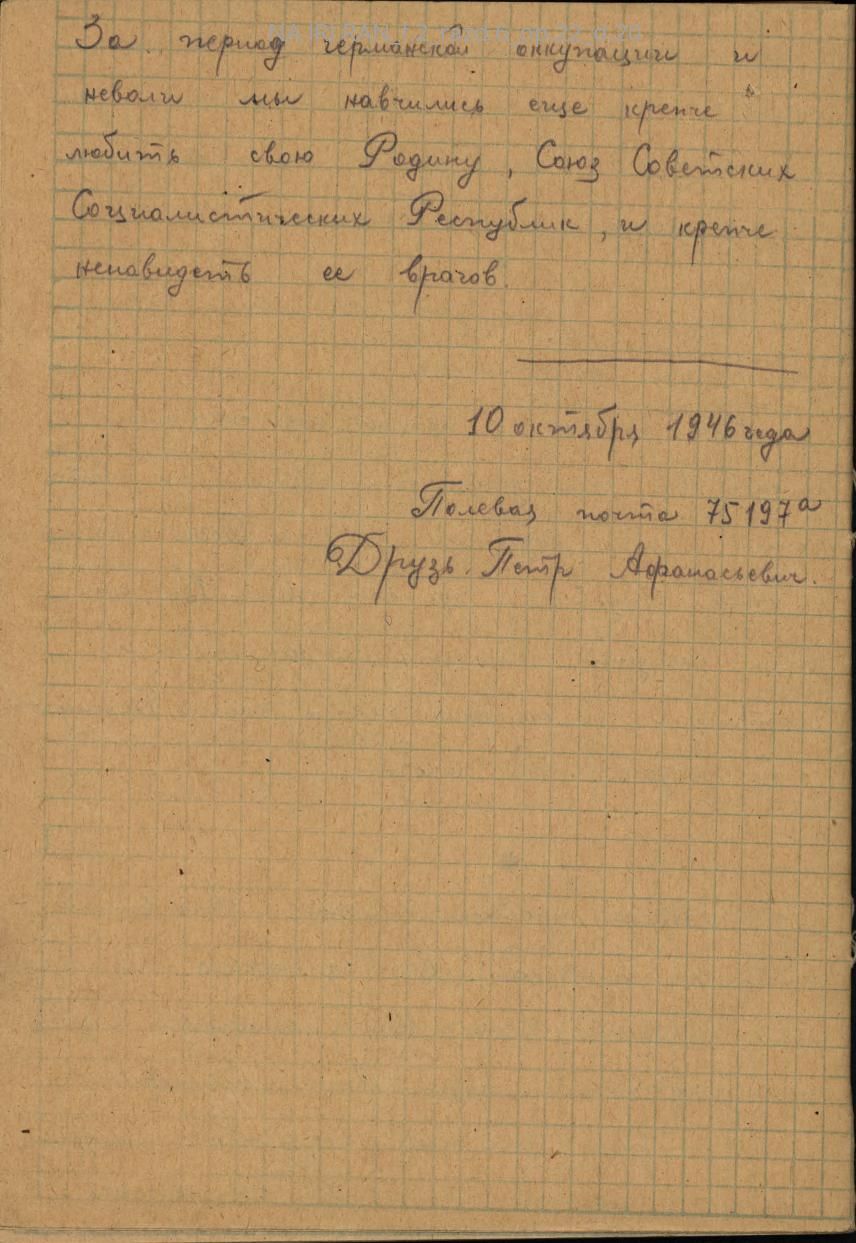 За период германской оккупации и
неволи мы навчились еще крепче
любить свою Родину, Союз Советских
Социалистических Республик, и крепче
ненавидеть ее врагов.
10 октября 1946 года
Полевая почта 75197а
Друзь Петр Афанасьевич.